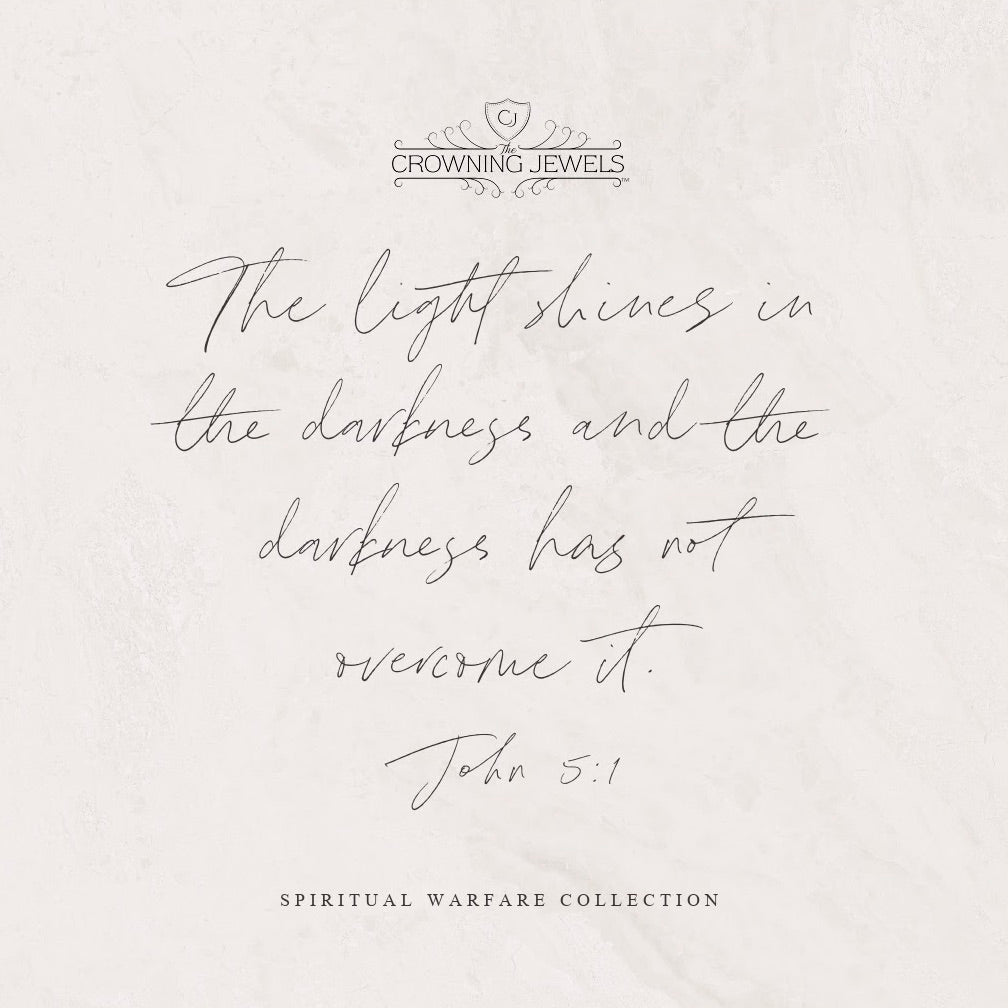 CJ
The
CROWNING JEWELS™
The light shines in
the darkness and the
darkness has not
overcome it.
John 5:1
SPIRITUAL WARFARE COLLECTION